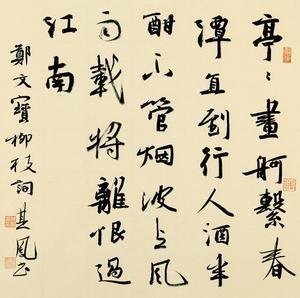 亭〻畫舸繫春
潭直到行人酒半
酣不管烟波与風
雨載將離恨過
江南
鄭文寶柳枝詞其鳳书